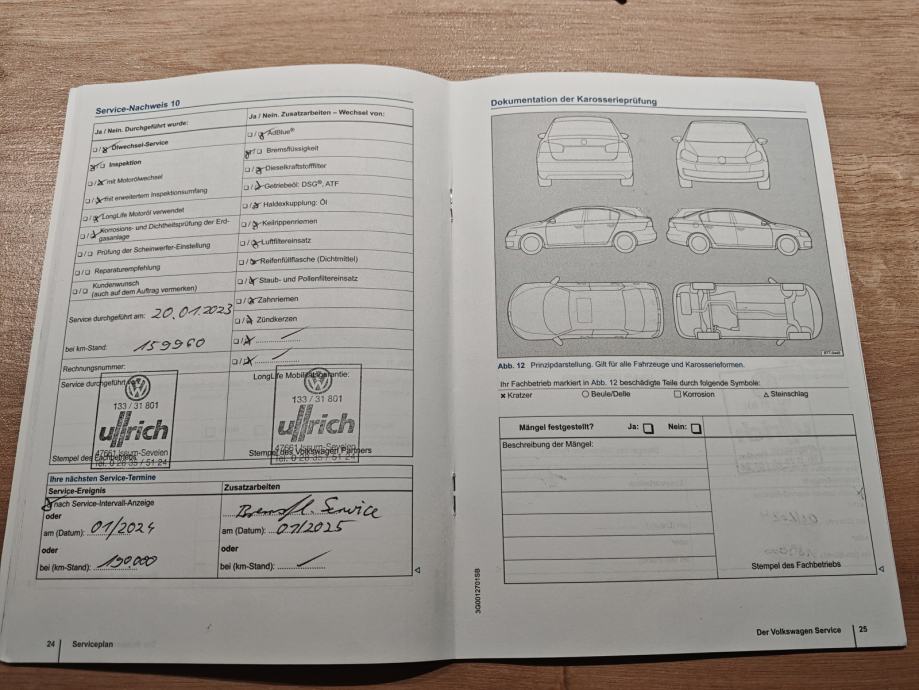 Service-Nachweis 10
Ja / Nein. Durchgeführt wurde:
Ölwechsel-Service
Inspektion
mit Motorölwechsel
mit erweitertem Inspektionsumfang
LongLife Motoröl verwendet
Korrosions- und Dichtheitsprüfung der Erd-
gasanlage
Prüfung der Scheinwerfer-Einstellung
Reparaturempfehlung
Kundenwunsch
(auch auf dem Auftrag vermerken)
Service durchgeführt am: 20.01.2023
bei km-Stand: 159960
Rechnungsnummer:
Service durchgeführt von:
133 / 31 801
ullrich
47661 Issum-Sevelen
Tel. 0 28 35 / 51 24
Stempel des Fachbetriebs
Ja / Nein. Zusatzarbeiten – Wechsel von:
AdBlue®
Bremsflüssigkeit
Dieselkraftstofffilter
Getriebeöl: DSG®, ATF
Haldexkupplung: Öl
Keilrippenriemen
Luftfiltereinsatz
Reifenfüllflasche (Dichtmittel)
Staub- und Pollenfiltereinsatz
Zahnriemen
Zündkerzen
LongLife Mobilitätsgarantie:
133 / 31 801
ullrich
47661 Issum-Sevelen
Tel. 0 28 35 / 51 24
Stempel des Volkswagen Partners
Ihre nächsten Service-Termine
Service-Ereignis
nach Service-Intervall-Anzeige
oder
am (Datum): 01/2024
oder
bei (km-Stand): 190000
Zusatzarbeiten
Bremsfl. Service
am (Datum): 01/2025
oder
bei (km-Stand):
24 Serviceplan
Dokumentation der Karosserieprüfung
Abb. 12 Prinzipdarstellung. Gilt für alle Fahrzeuge und Karosserieformen.
Ihr Fachbetrieb markiert in Abb. 12 beschädigte Teile durch folgende Symbole:
x Kratzer ○ Beule/Delle □ Korrosion △ Steinschlag
Mängel festgestellt? Ja: Nein:
Beschreibung der Mängel:
Stempel des Fachbetriebs
3G0012701SB
Der Volkswagen Service 25